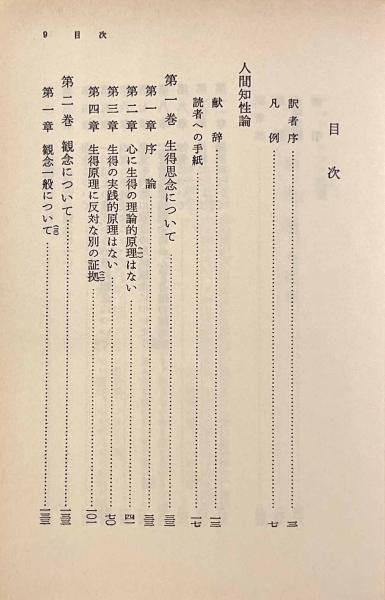 目次
訳者序……三
凡例……七
人間知性論
献辞……一三
読者への手紙……一七
第一巻 生得思念について……三三
第一章 序論……三三
第二章 心に生得の理論的原理はない(一)……四一
第三章 生得の実践的原理はない……七〇
第四章 生得原理に反対な別の証拠(二)……一〇一
第二巻 観念について……一三三
第一章 観念一般について……一三三
目次 9